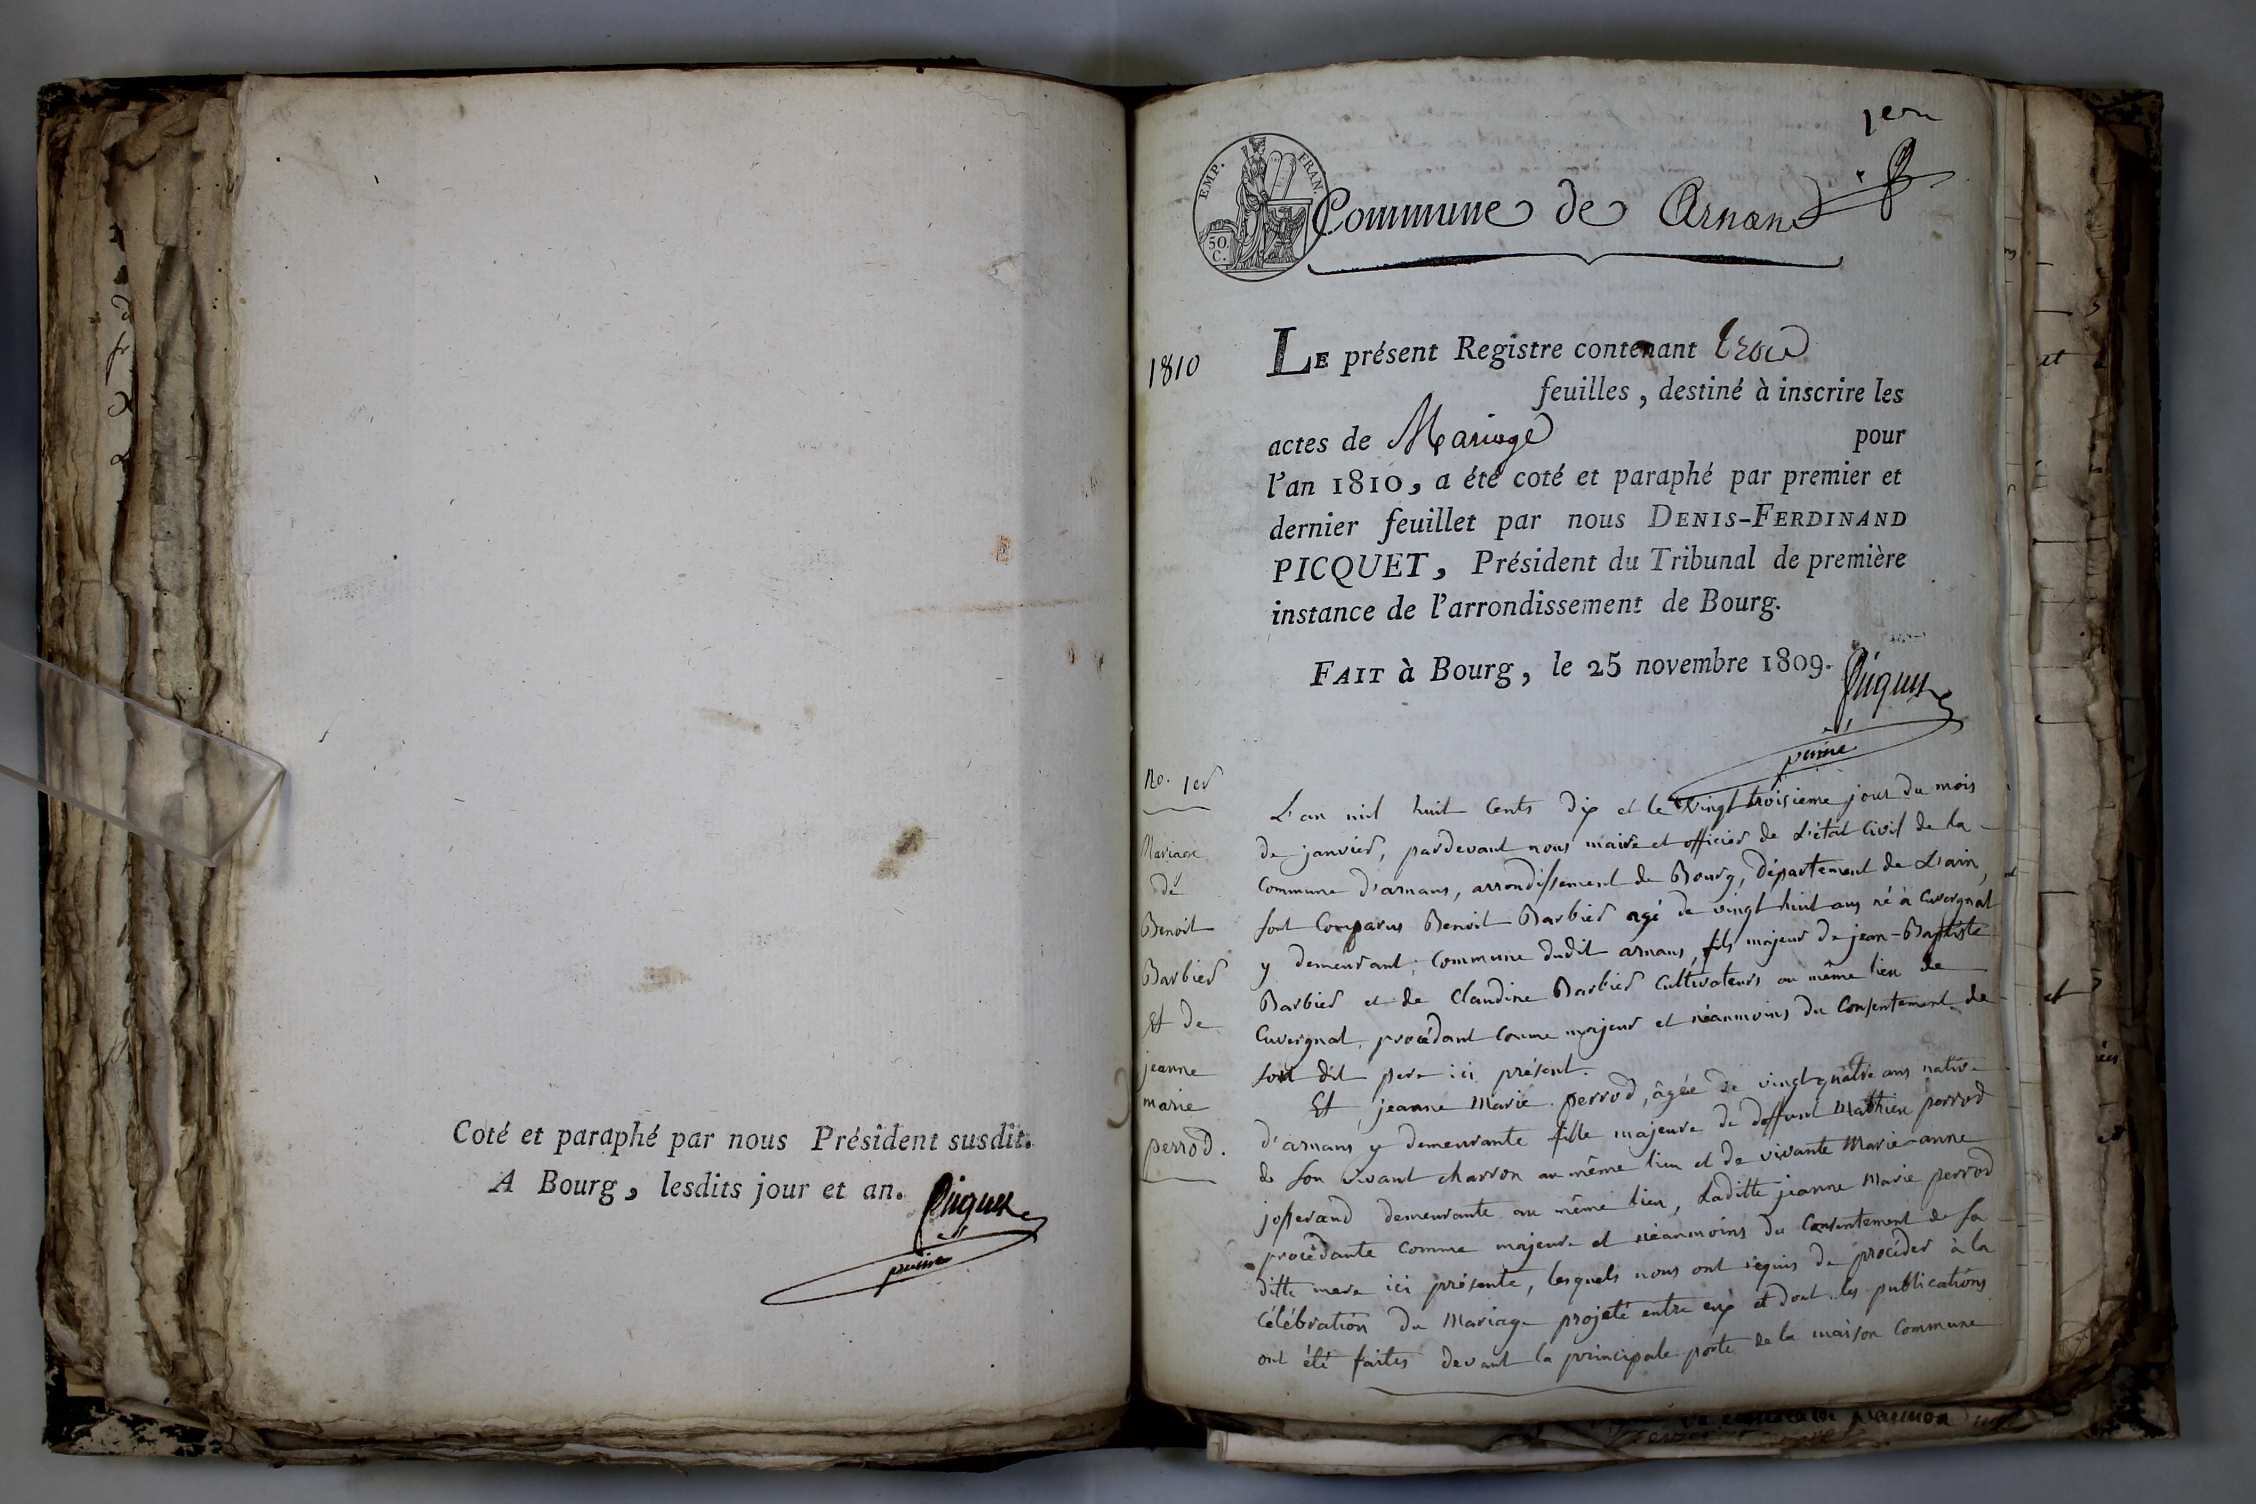 Coté et paraphé par nous Président susdit.
A Bourg, lesdits jour et an.
Picquet
premier
1er
EMP. FRAN.
50. C.
Commune de Arnans
1810
LE présent Registre contenant trois
feuilles, destiné à inscrire les
actes de Mariage pour
l'an 1810, a été coté et paraphé par premier et
dernier feuillet par nous DENIS-FERDINAND
PICQUET, Président du Tribunal de première
instance de l'arrondissement de Bourg.
FAIT à Bourg, le 25 novembre 1809.
Picquet
No. 1er
Mariage
de
Benoit
Barbier
Et de
jeanne
marie
perrod.
L'an mil huit Cents dix et le vingt troisième jour du mois
de janvier, pardevant nous maire et officier de L'état Civil de la
Commune d'arnans, arrondissement de Bourg, département de L'ain,
sont Comparus Benoit Barbier agé de vingt huit ans né à Cuvergnat
y demeurant, Commune dudit arnans, fils majeur de jean-Baptiste
Barbier et de Claudine Barbier Cultivateurs au même lieu de
Cuvergnat, procédant comme majeur et néanmoins du Consentement de
son dit pere ici présent.
Et jeanne Marie perrod, âgée de vingt quatre ans native
d'arnans y demeurante fille majeure de deffunt Mathieu perrod
de son vivant charron au même lieu et de vivante Marie-anne
josserand demeurante au même lieu, Laditte jeanne Marie perrod
procédante comme majeure et néanmoins du Consentement de sa
ditte mere ici présente, lesquels nous ont requis de procéder à la
Célébration du Mariage projeté entre eux et dont les publications
ont été faites devant la principale porte de la maison Commune